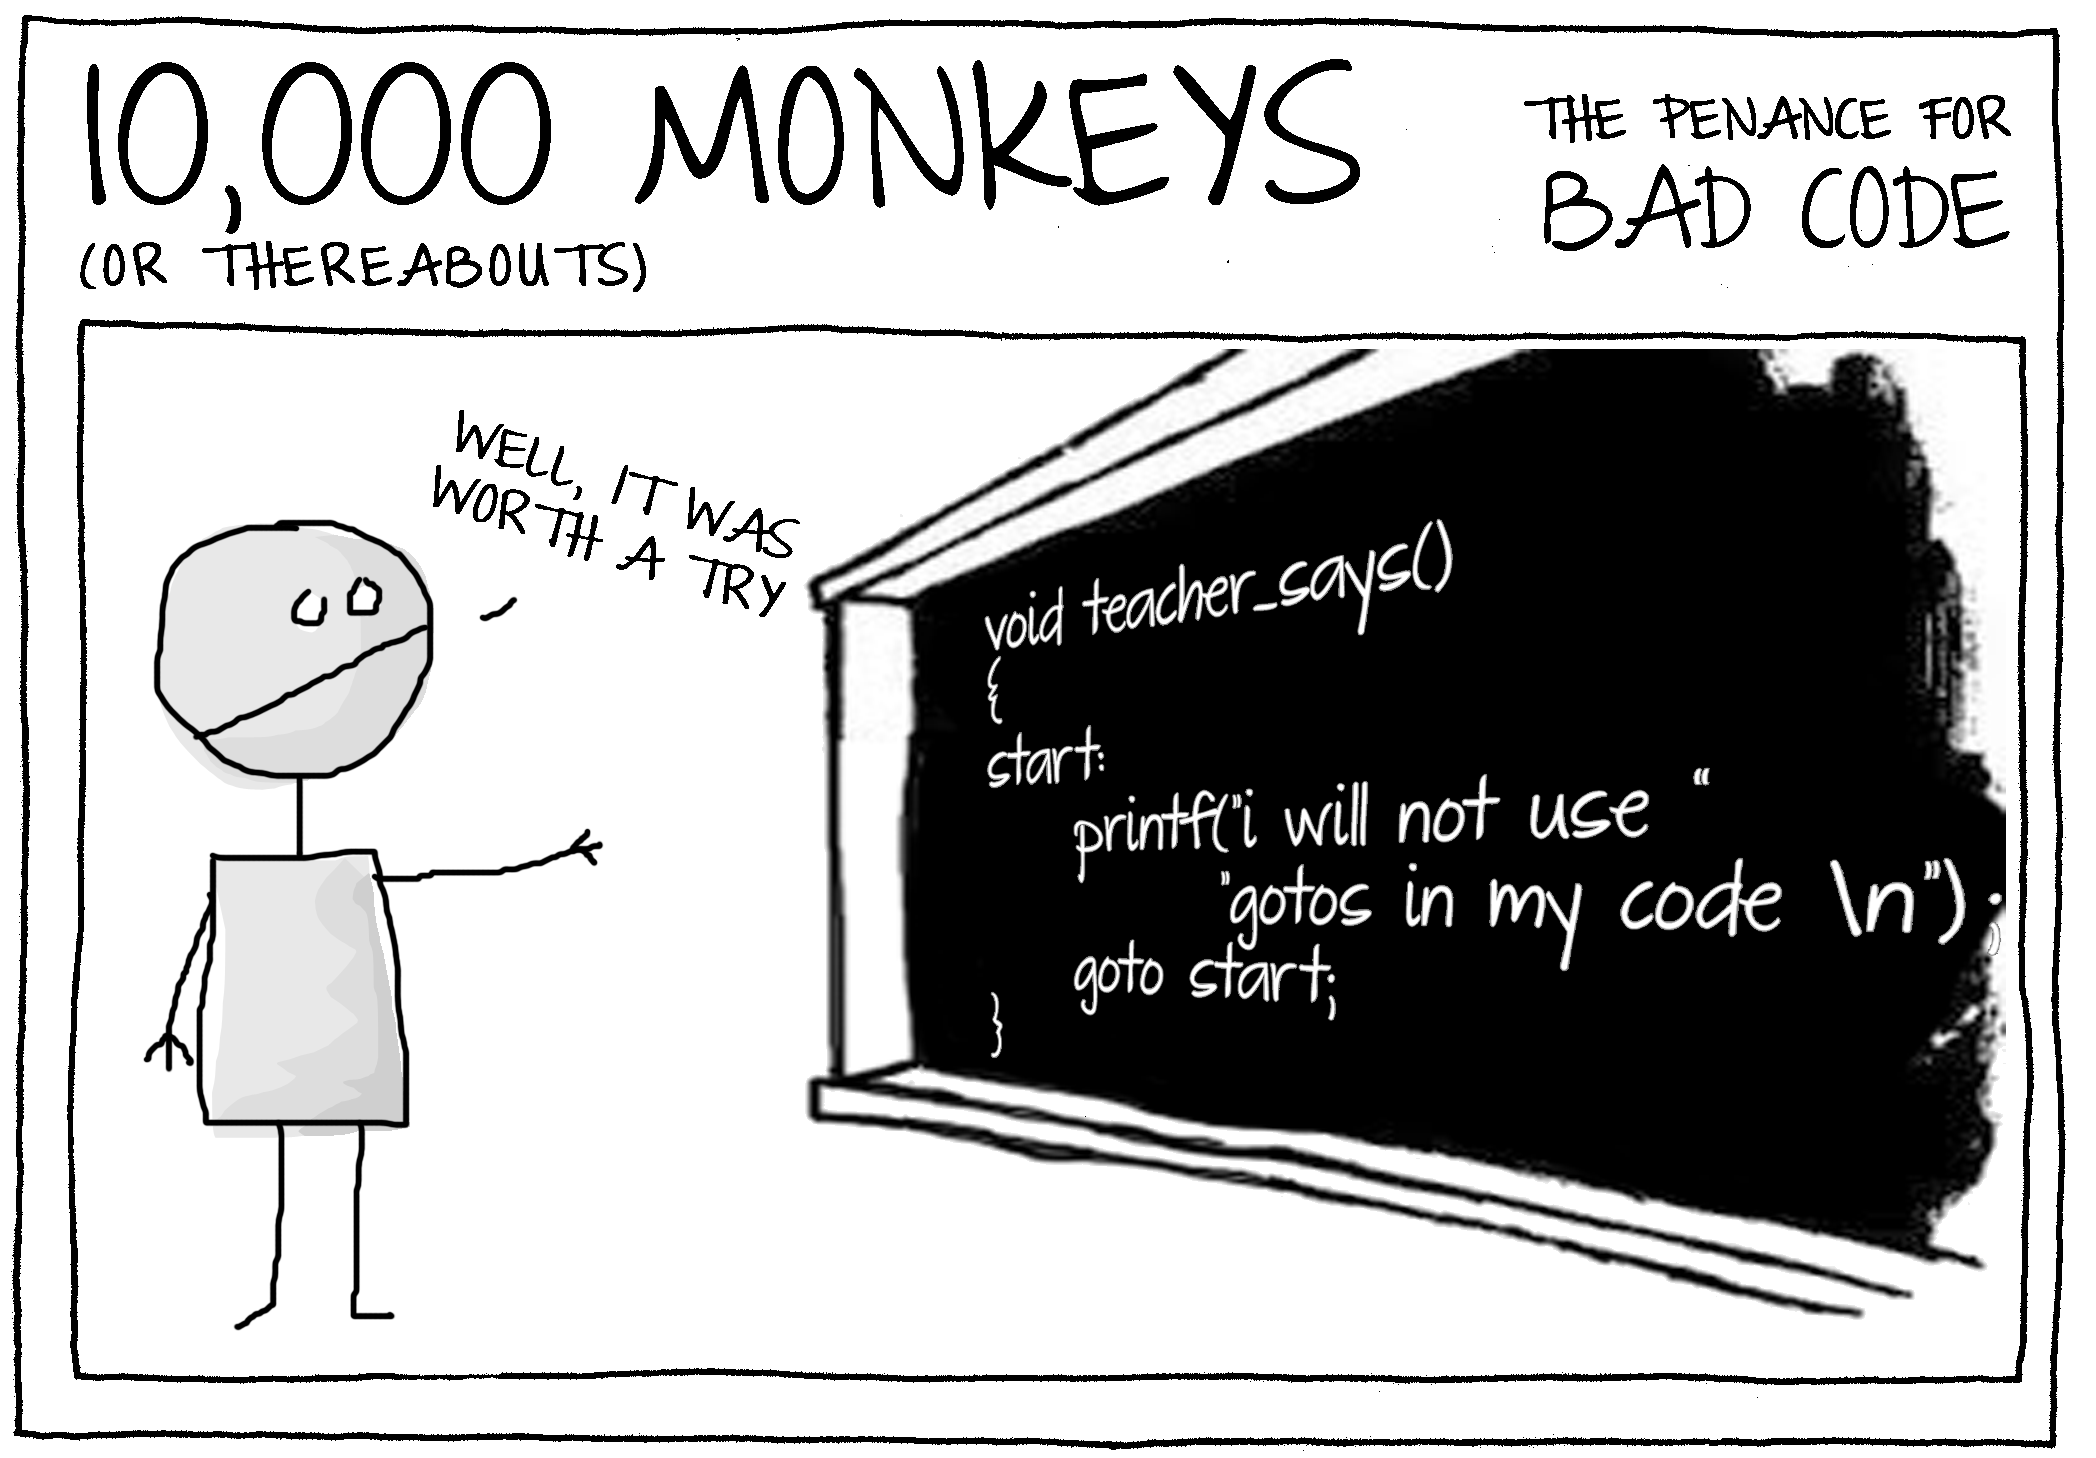 10,000 MONKEYS
(OR THEREABOUTS)
THE PENANCE FOR
BAD CODE
WELL, IT WAS
WORTH A TRY
void teacher_says()
{
start:
printf("i will not use "
"gotos in my code \n");
goto start;
}